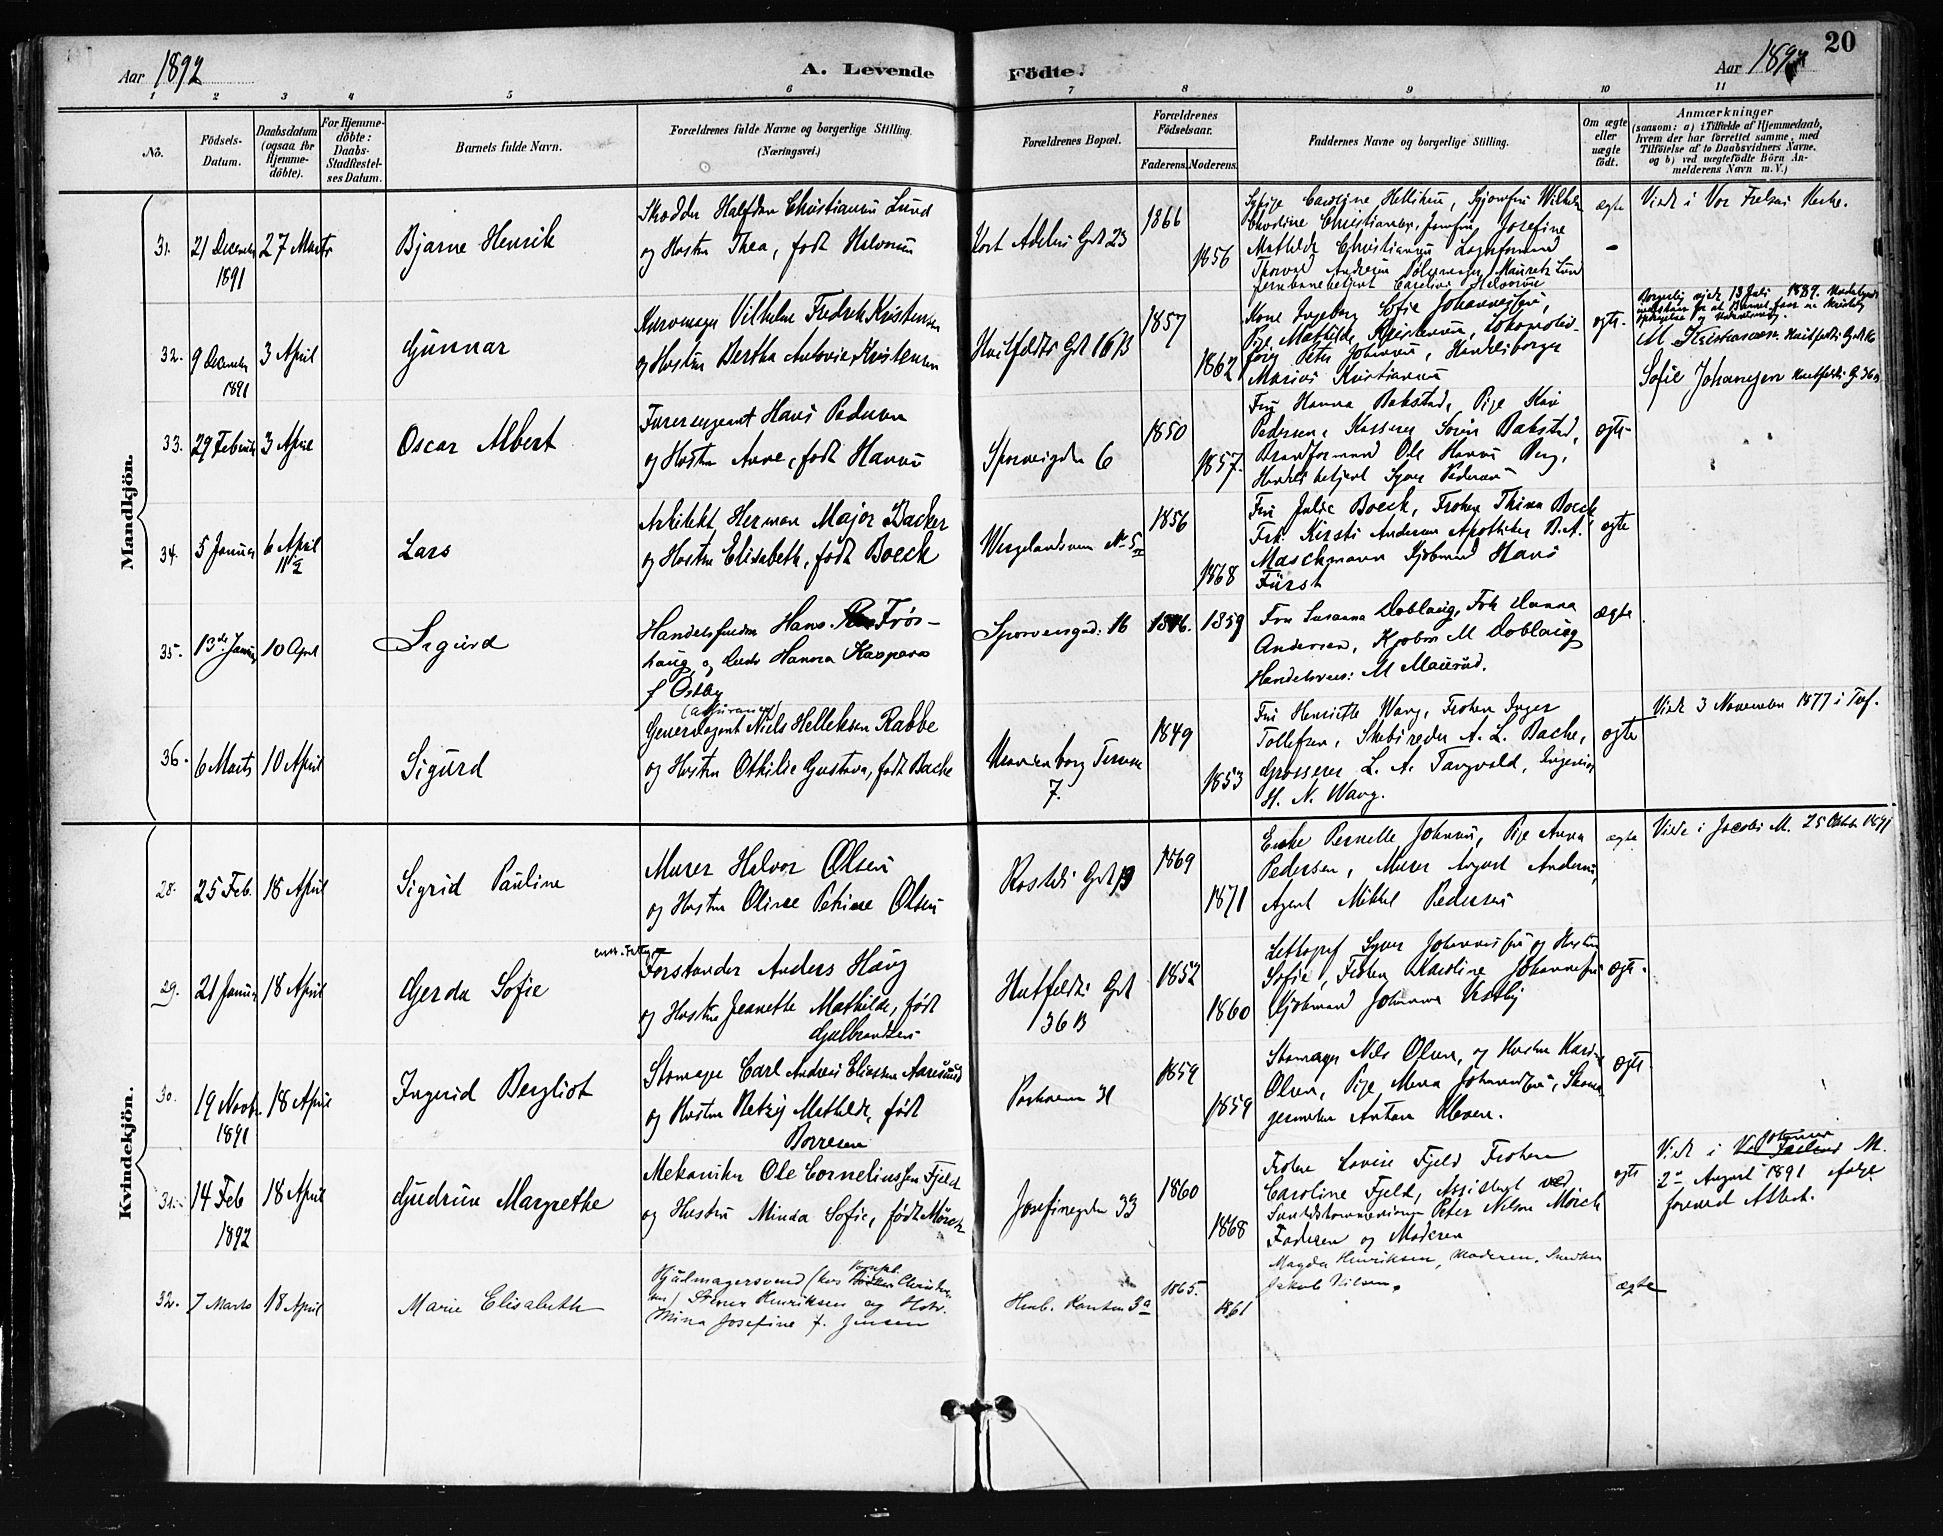 20
Aar 1892
A. Levende Födte.
Aar 1892
1 2 3 4 5 6 7 8 9 10 11
No.
Födsels-Datum.
Daabsdatum (ogsaa for Hjemmedöbte).
For Hjemmedöbte: Daabs-Stadfæstelses Datum.
Barnets fulde Navn.
Forældrenes fulde Navne og borgerlige Stilling.
(Næringsvei.)
Forældrenes Bopæl.
Forældrenes Födselsaar.
Faderens. Moderens.
Faddernes Navne og borgerlige Stilling.
Om ægte eller uægte födt.
Anmærkninger
(saasom: a) i Tilfælde af Hjemmedaab,
hvem der har forrettet samme, med
Tilföielse af to Daabsvidners Navne,
og b) ved uægtefödte Börn An-
melderens Navn m.V.)
Mandkjön.
31. 21 December 1891 27 Marts
Bjarne Henrik
Skrædder Halfdan Christiansen Lund
og Hustru Thea, født Halvorsen
Cort Adelers Gd 23
1866
1856
Mathilde Christiansen
ægte
Viede i Vor Frelsers Kirke.
32. 9 December 1891 3 April
Gunnar
Kurvmager Vilhelm Fredrik Kristensen
og Hustru Bertha Antonie Kristensen
Huitfeldts Gd 16 B
1857
1862
Kone Ingeborg Sofie Johannessen,
Pige Mathilde Kristensen,
Peter Johansen, Handelsborger
Marius Kristiansen
ægte
Borgerlig viede 13 Juli 1889.
M Kristiansen Huitfeldts Gd 16
Sofie Johansen Huitfeldts G. 36 B
33. 29 Februar 3 April
Oscar Albert
Furersergeant Hans Pedersen
og Hustru Anne, født Hansen
Sporveigsgaden 6
1850
1857.
Fru Hanna Bakstad, Pige
Pedersen, Kasserer Søren Bakstad,
Brandformand Ole Hansen Berg,
Handelsbetjent Syver Pedersen
ægte
34. 5 Januar 6 April
Lars
Arkitekt Herman Major Backer
og Hustru Elisabeth, født Boeck
Wergelandsveien No 5
1856
1868
Fru Julie Boeck, Frøken Thina Boeck
Frk. Kirsti Andersen Apotheker B.A.
Maschmann Kjøbmand Hans
Fürst
ægte
35. 13de Januar 10 April
Sigurd
Handelsfuldm Hans Frøs-
haug og Hustru Hanna Kaspara
f Østby
Sporveisgad: 16
1846. 1859
Fru Susanna Doblaug, Frk Hanna
Andersen, Kjøbm M Doblaug
Handelsreis: M Maurud.
ægte
36. 6 Marts 10 April
Sigurd
(assurance)
Generalagent Niels Helleksen Rabbe
og Hustru Othilie Gustava, født Bache
Uranienborg Terrasse 7.
1849
1853
Fru Henriette Wang, Frøken Inger
Tollefsen, Skibsreder A. L. Bache,
Grosserer L. A. Tangvald, Ingeniør
H. N. Wang.
ægte
Viede 3 November 1877 i
Kvindekjön.
28. 25 Feb. 18 April
Sigrid Pauline
Murer Halvor Olsen
og Hustru Oline Petrine Olsen
Rosteds Gd 13
1869
1871
Enke Pernelle Johnsen, Pige Anna
Pedersen, Murer August Andersen,
Agent Mikkel Pedersen
ægte
Viede i Jacobs M. 25 Oktbr 1891
29. 21 Januar 18 April
Gerda Sofie
Forstander Anders Haug
og Hustru Jeanette Mathilde, født
Gulbrandsen
Huitfeldts Gd
36 B
1852
1860
Lithograf Syver Johannessen og Hustru
Sofie, Frøken Karoline Johannessen
Kjøbmand Johannes Vestby
ægte.
30. 19 Novbr. 1891 18 April
Ingrid Bergliot
Skomager Carl Andreas Eliassen Aaresund
og Hustru Betzy Mathilde, født
Borresen
Parkveien 31
1859
1859
Skomager Nils Olsen, og Hustru Karine
Olsen, Pige Mina Johannessen, Skoma-
germester Anton Kleven.
ægte.
31. 14 Feb 1892 18 April
Gudrun Margrethe
Mekaniker Ole Corneliussen Fjeld
og Hustru Minda Sofie, født Mörch
Josefinegaden 33
1860
1868
Frøken Lovise Fjeld Frøken
Caroline Fjeld, Assistent ved
Sundhedskommissionen Peter Nilsen Mörch
Faderen og Moderen
ægte
Viede i Johannes M.
2n August 1891 ifølge
foreviist Attest.
32. 7 Marts 18 April
Marie Elisabeth
Hjulmagersvend (hos Christen-
sen) Stener Henriksen og Hstr.
Mina Josefine f. Jensen
3a
1865.
1861
Magda Henriksen, Moderen, Snedker
Jakob Nilsen.
ægte